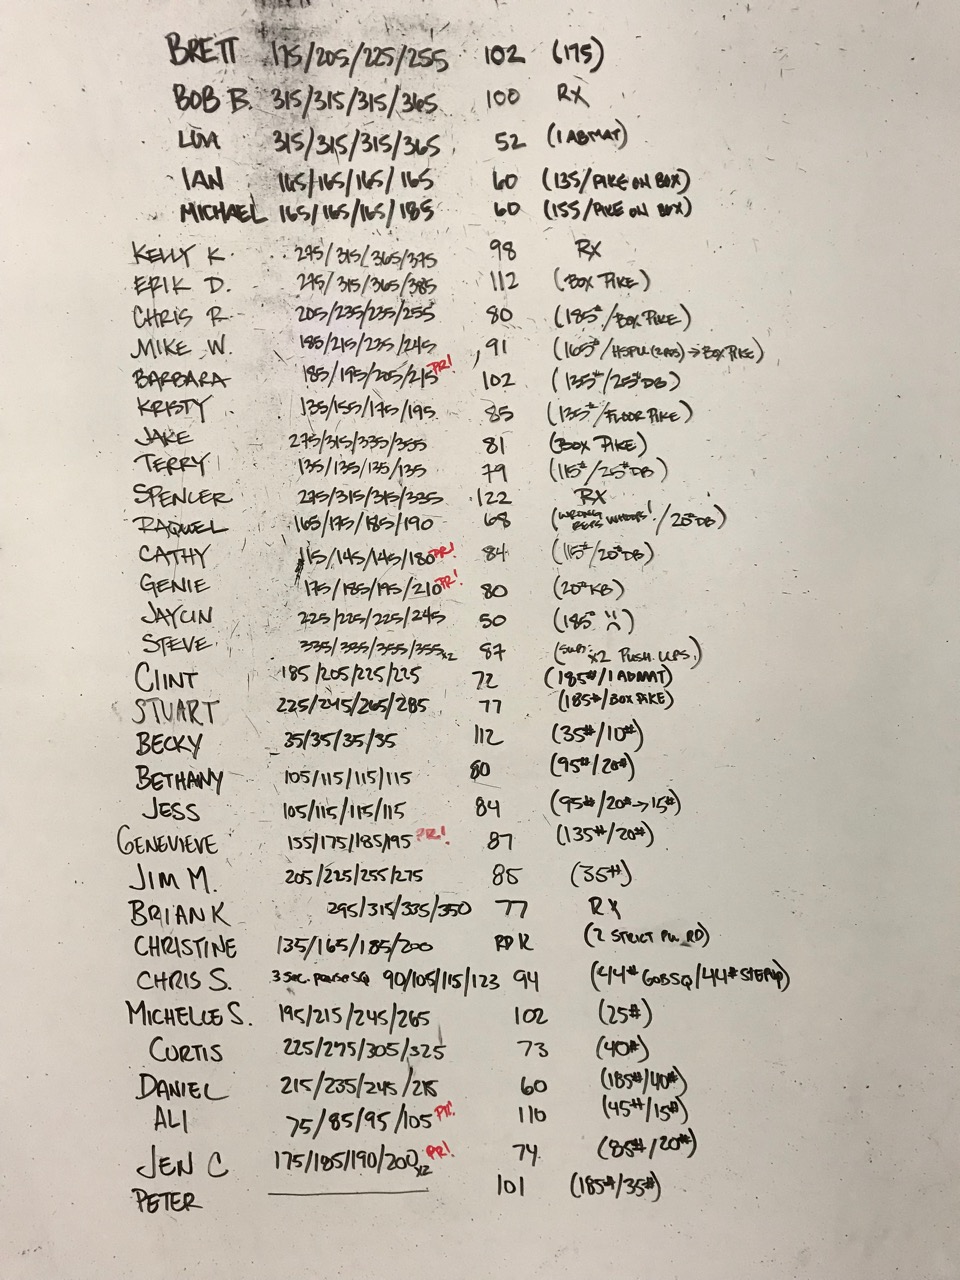 BRETT 175/205/225/255 102 (175)
BOB B. 315/315/315/365 100 RX
315/315/315/365 52 (1 ABMAT)
IAN 165/165/165/165 60 (135/PIKE ON BOX)
MICHAEL 165/165/165/185 60 (155/PIKE ON BOX)
KELLY K. 275/315/365/375 98 RX
ERIK D. 275/315/365/385 112 (BOX PIKE)
CHRIS R. 205/235/235/255 80 (185#/BOX PIKE)
MIKE W. 185/215/235/245 91 (165#/HSPU(2RDS)→BOX PIKE)
BARBARA 185/195/205/215 PR! 102 (135#/25#DB)
KRISTY 135/155/175/195 85 (135#/FLOOR PIKE)
JAKE 275/315/335/355 81 (BOX PIKE)
TERRY 135/135/135/135 79 (115#/25#DB)
SPENCER 275/315/315/335 122 RX
RAQUEL 165/175/185/190 68 (WRONG REPS WHOOPS!/20#DB)
CATHY 115/145/145/180 PR! 84 (115#/20#DB)
GENIE 175/185/195/210 PR! 80 (20#KB)
JAYLIN 225/225/225/245 50 (185# ☹)
STEVE 335/335/355/355x2 87 (SUB: x2 PUSH UPS)
CLINT 185/205/225/225 72 (185#/1 ABMAT)
STUART 225/245/265/285 77 (185#/BOX PIKE)
BECKY 35/35/35/35 112 (35#/10#)
BETHANY 105/115/115/115 80 (95#/20#)
JESS 105/115/115/115 84 (95#/20#→15#)
GENEVIEVE 155/175/185/195 PR! 87 (135#/20#)
JIM M. 205/225/255/275 85 (35#)
BRIAN K 295/315/335/350 77 RX
CHRISTINE 135/165/185/200 (2 STRICT PU RD)
CHRIS S. 3 sec. pause SQ 90/105/115/123 94 (44# GOB SQ/44# STEPUP)
MICHELLE S. 195/215/245/265 102 (25#)
CURTIS 225/275/305/325 73 (40#)
DANIEL 215/235/245/275 60 (185#/40#)
ALI 75/85/95/105 PR! 110 (45#/15#)
JEN C 175/185/190/200x2 PR! 74 (85#/20#)
PETER 101 (185#/35#)